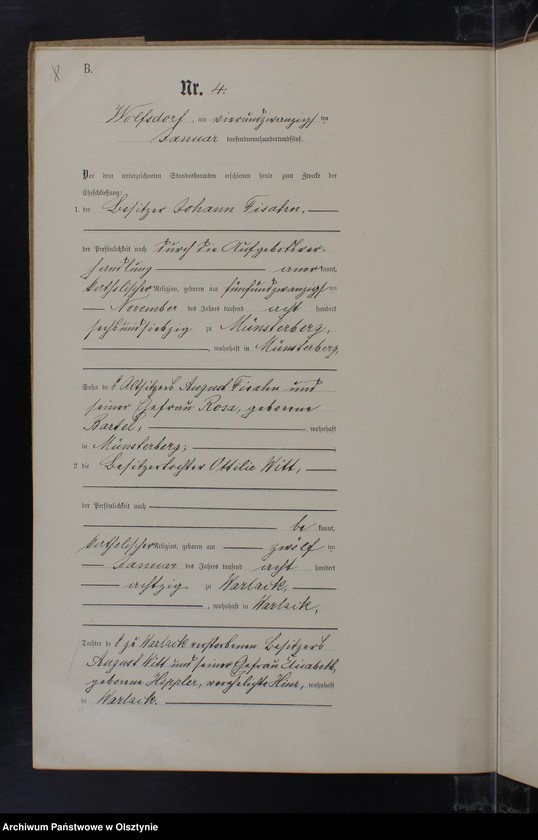 8
B.
Nr. 4.
Wolfsdorf am vierundzwanzigsten
Januar tausendneunhundertundfünf.
Vor dem unterzeichneten Standesbeamten erschienen heute zum Zwecke der
Eheschließung:
1. der Besitzer Johann Fisahn,
der Persönlichkeit nach durch die Aufgebotsver-
handlung anerkannt,
katholischer Religion, geboren am fünfundzwanzigsten
November des Jahres tausend acht hundert
sechsundsiebzig zu Münsterberg,
, wohnhaft in Münsterberg,
Sohn des Altsitzers August Fisahn und
seiner Ehefrau Rosa, geborene
Bartel, wohnhaft
in Münsterberg;
2. die Besitzertochter Ottilie Witt,
der Persönlichkeit nach
be kannt,
katholischer Religion, geboren am zwölf ten
Januar des Jahres tausend acht hundert
achtzig zu Warlack,
, wohnhaft in Warlack,
Tochter des zu Warlack verstorbenen Besitzers
August Witt und seiner Ehefrau Elisabeth,
geborene Hippler, verehelichte Hinz, wohnhaft
in Warlack.
Archiwum Państwowe w Olsztynie